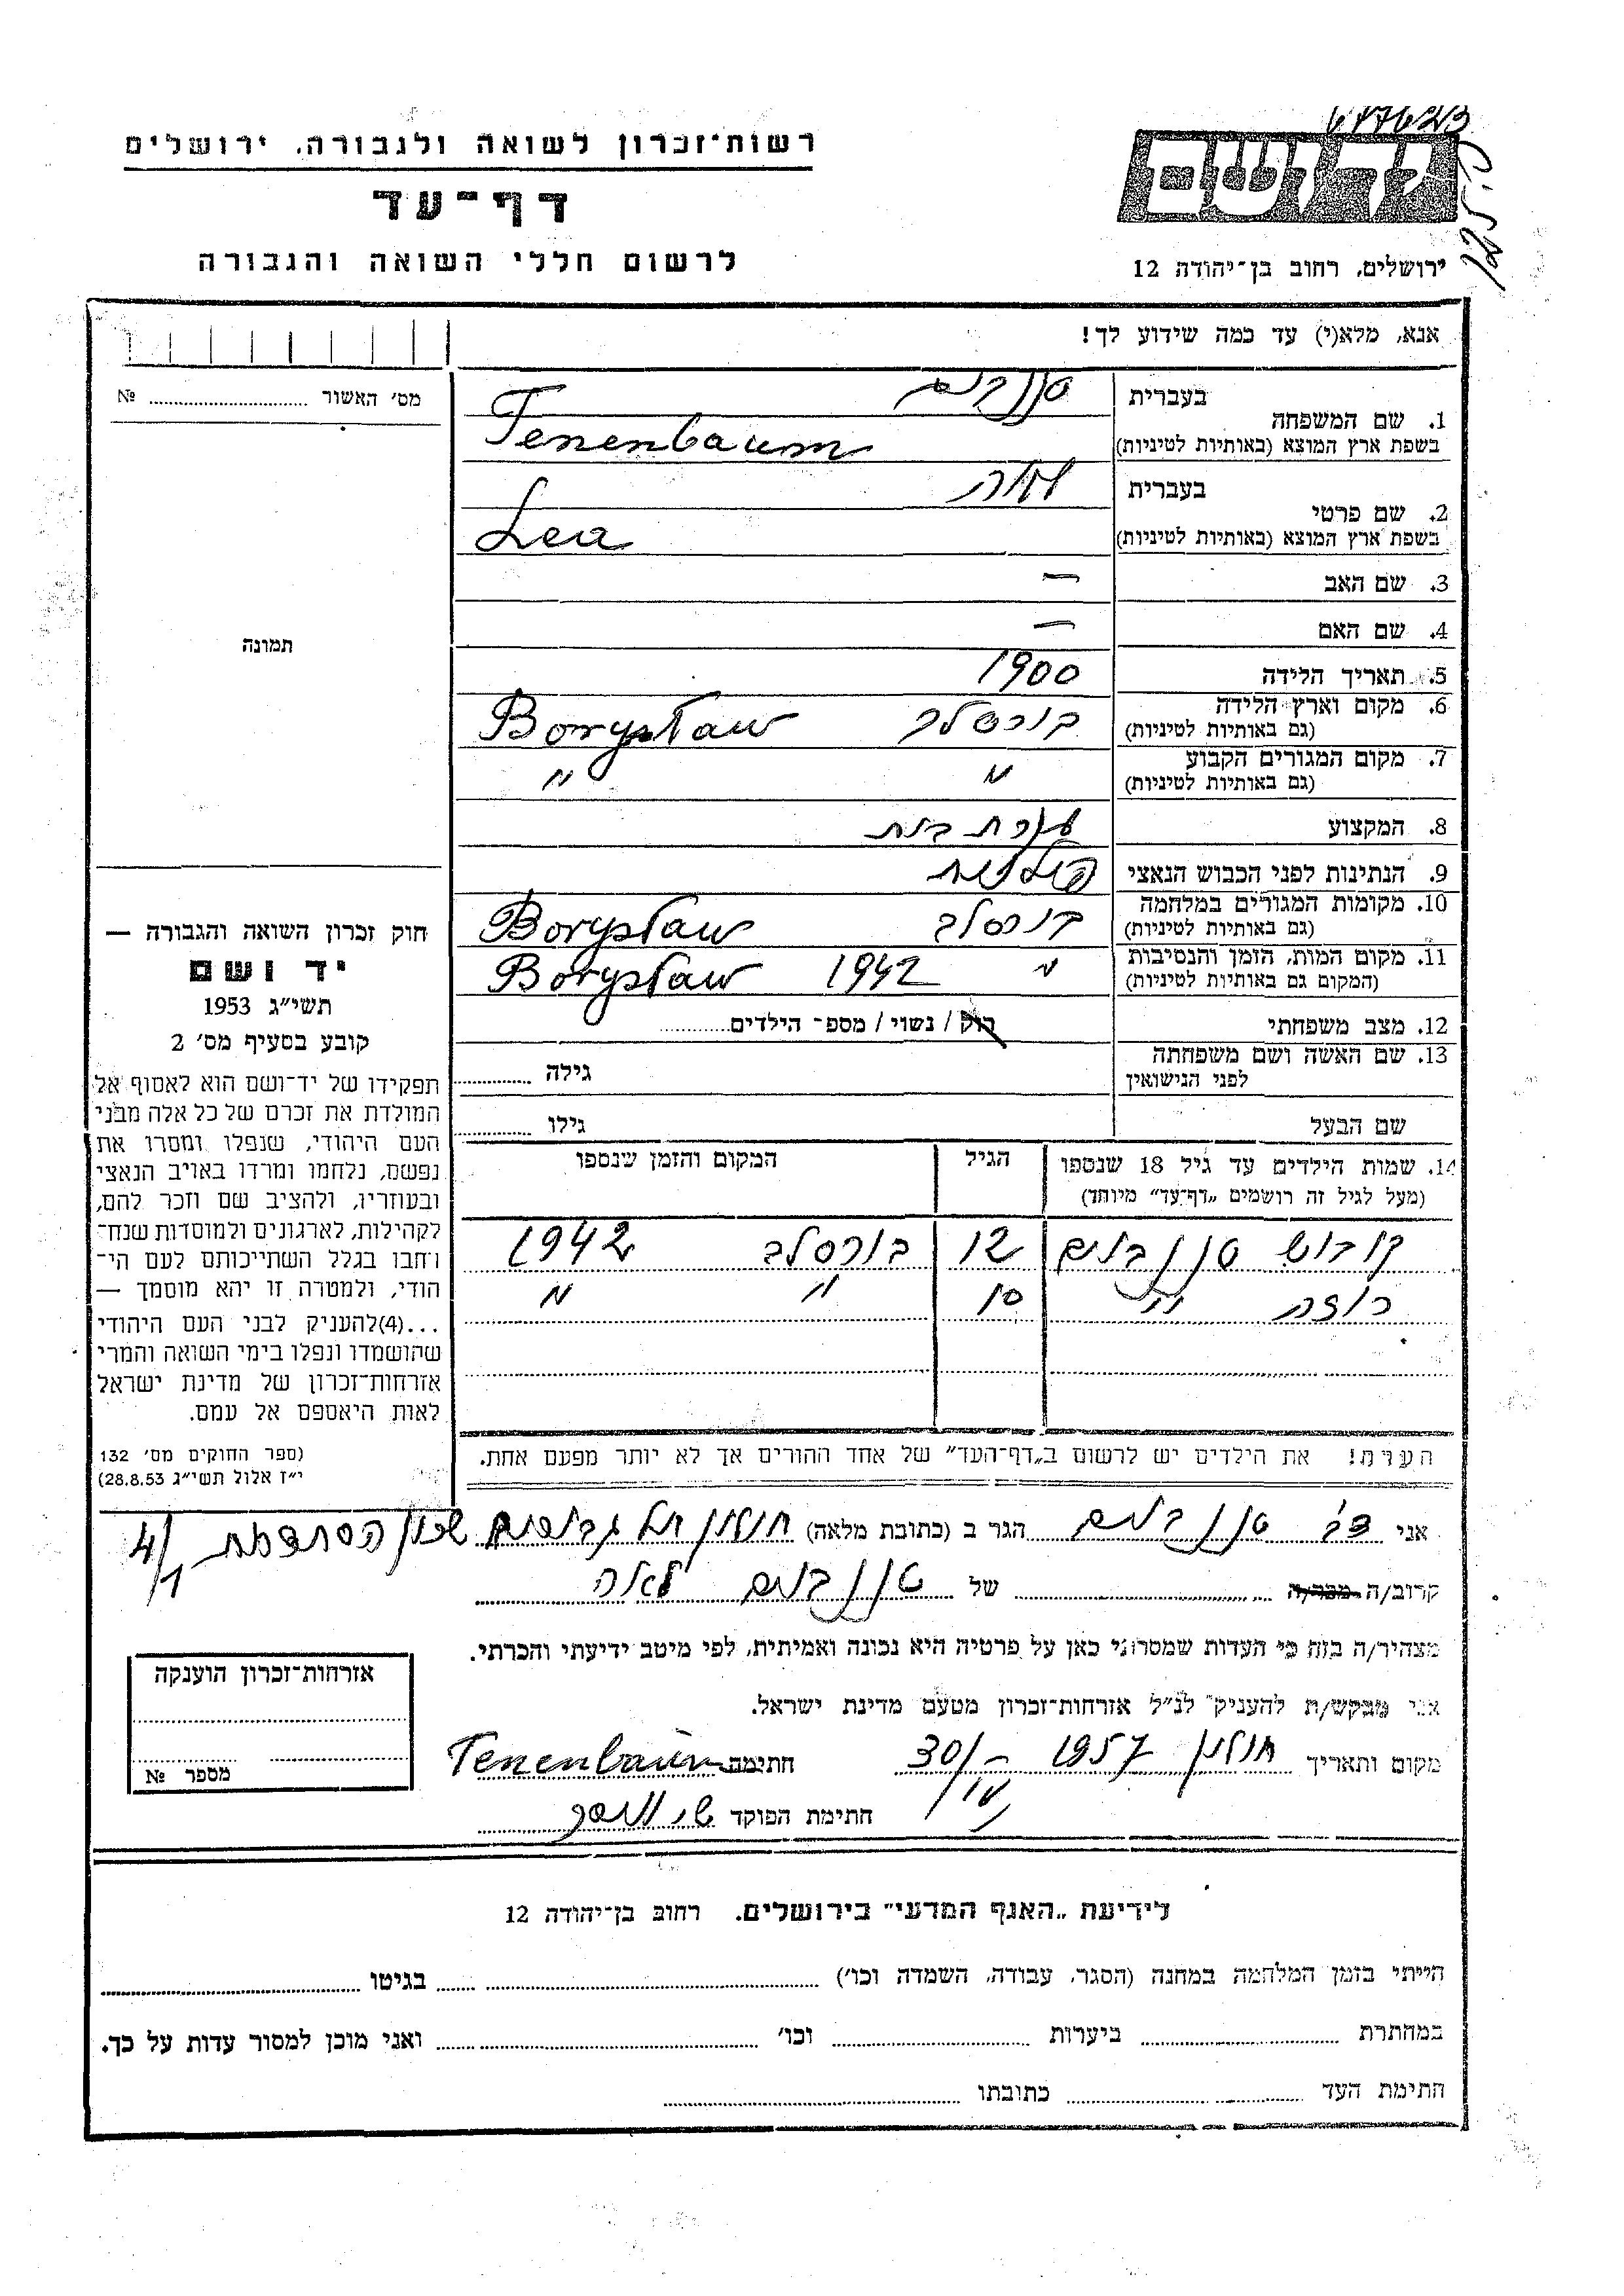 677623
רשות־זכרון לשואה ולגבורה, ירושלים
דף־עד
לרשום חללי השואה והגבורה
יד ושם
ירושלים, רחוב בן־יהודה 12
אנא, מלא(י) עד כמה שידוע לך!
מס׳ האשור ........ №
1. שם המשפחה
בעברית טננבוים
בשפת ארץ המוצא (באותיות לטיניות) Tenenbaum
2. שם פרטי
בעברית לאה
בשפת ארץ המוצא (באותיות לטיניות) Lea
3. שם האב —
4. שם האם —
5. תאריך הלידה 1900
6. מקום וארץ הלידה (גם באותיות לטיניות) בורסלב Borysław
7. מקום המגורים הקבוע (גם באותיות לטיניות) " "
8. המקצוע עקרת בית
9. הנתינות לפני הכבוש הנאצי פולנית
10. מקומות המגורים במלחמה (גם באותיות לטיניות) בורסלב Borysław
11. מקום המות, הזמן והנסיבות (המקום גם באותיות לטיניות) " 1942 Borysław
12. מצב משפחתי רווק / נשוי / מספר הילדים........
13. שם האשה ושם משפחתה לפני הנישואין גילה ........
שם הבעל גילו ........
14. שמות הילדים עד גיל 18 שנספו
(מעל לגיל זה רושמים „דף־עד״ מיוחד)
הגיל
המקום והזמן שנספו
טננבוים 12 בורסלב 1942
רוזה " 10 " "
הערה! את הילדים יש לרשום ב„דף־העד״ של אחד ההורים אך לא יותר מפעם אחת.
תמונה
חוק זכרון השואה והגבורה —
יד ושם
תשי״ג 1953
קובע בסעיף מס׳ 2
תפקידו של יד־ושם הוא לאסוף אל
המולדת את זכרם של כל אלה מבני
העם היהודי, שנפלו ומסרו את
נפשם, נלחמו ומרדו באויב הנאצי
ובעוזריו, ולהציב שם וזכר להם,
לקהילות, לארגונים ולמוסדות שנח־
רבו בגלל השתייכותם לעם הי־
הודי, ולמטרה זו יהא מוסמך —
...(4)להעניק לבני העם היהודי
שהושמדו ונפלו בימי השואה והמרי
אזרחות־זכרון של מדינת ישראל
לאות היאספם אל עמם.
(ספר החוקים מס׳ 132
י״ז אלול תשי״ג 28.8.53)
אני צבי טננבוים הגר ב (כתובת מלאה) חולון תל גבורים שכון הסתדרות 4/1
קרוב/ה מכר/ה ........ של טננבוים לאה
מצהיר/ה בזה כי העדות שמסרתי כאן על פרטיה היא נכונה ואמיתית, לפי מיטב ידיעתי והכרתי.
אני מבקש/ת להעניק לנ״ל אזרחות־זכרון מטעם מדינת ישראל.
מקום ותאריך חולון 1957 30/IV חתימה Tenenbaum
חתימת הפוקד
אזרחות־זכרון הוענקה
מספר №
לידיעת „האגף המדעי״ בירושלים. רחוב בן־יהודה 12
הייתי בזמן המלחמה במחנה (הסגר, עבודה, השמדה וכו׳) ........ בגיטו ........
במחתרת ........ ביערות ........ וכו׳ ........ ואני מוכן למסור עדות על כך.
חתימת העד ........ כתובתו ........